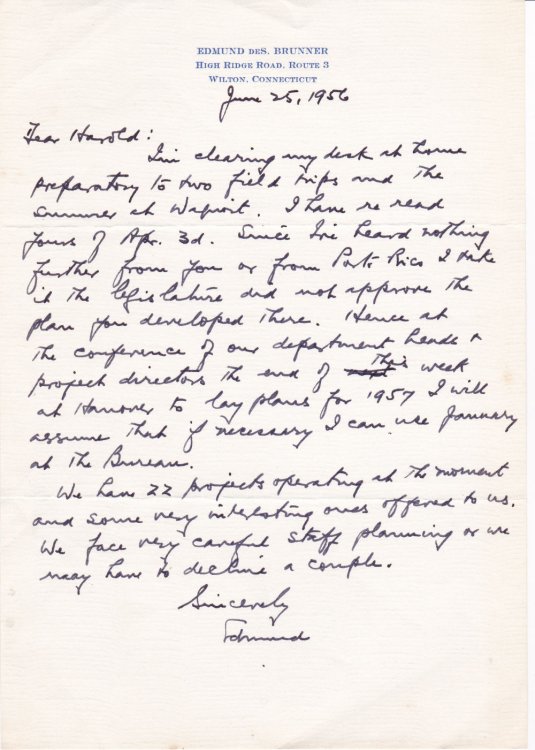 EDMUND DES. BRUNNER
HIGH RIDGE ROAD, ROUTE 3
WILTON, CONNECTICUT
June 25, 1956
Dear Harold:
I'm clearing my desk at home
preparatory to two field trips and the
summer at . I have re read
yours of Apr. 3d. Since I've heard nothing
further from you or from Porto Rico I take
it the legislature did not approve the
plan you developed there. Hence at
the conference of our department heads &
project directors the end of this week
at Hanover to lay plans for 1957 I will
assume that if necessary I can use January
at the Bureau.
We have 22 projects operating at the moment
and some very interesting ones offered to us.
We face very careful staff planning or we
may have to decline a couple.
Sincerely
Edmund